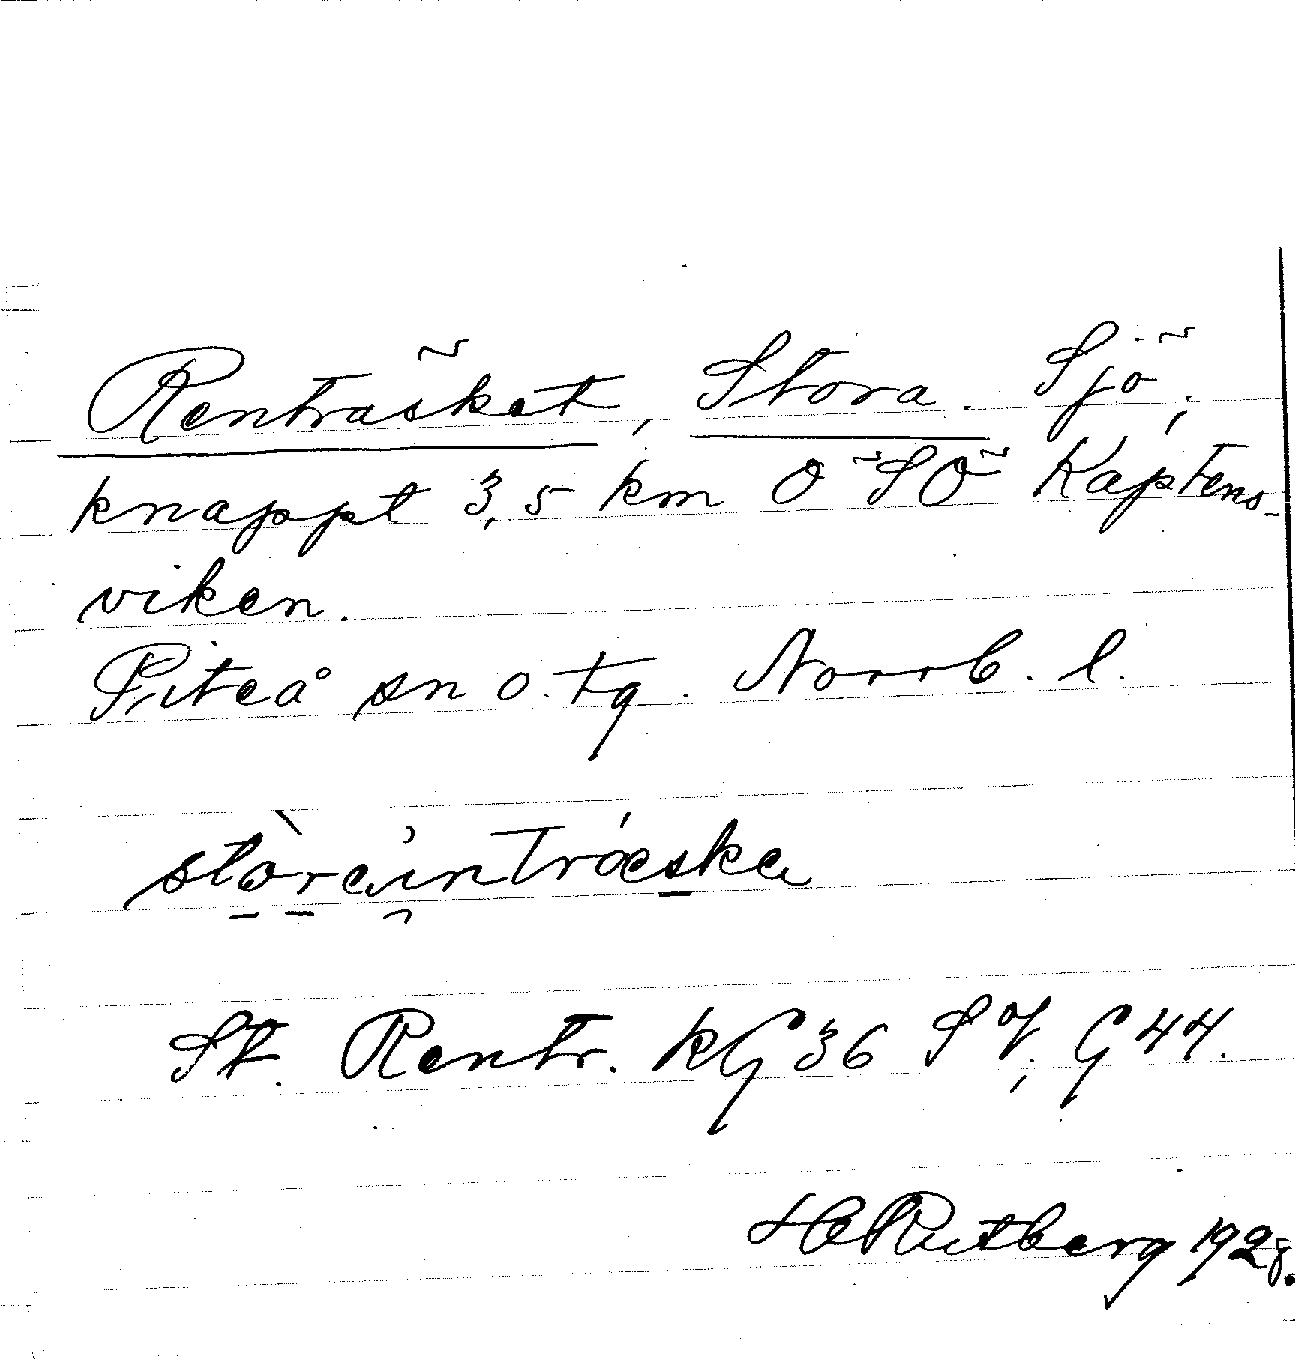 Renträsket, Stora. Sjö,
knappt 3,5 km OSO Kaptens-
viken.
Piteå sn o. tg. Norrb. l.
St. Rentr. kG 36 SV, G 44.
H Rutberg 1928.